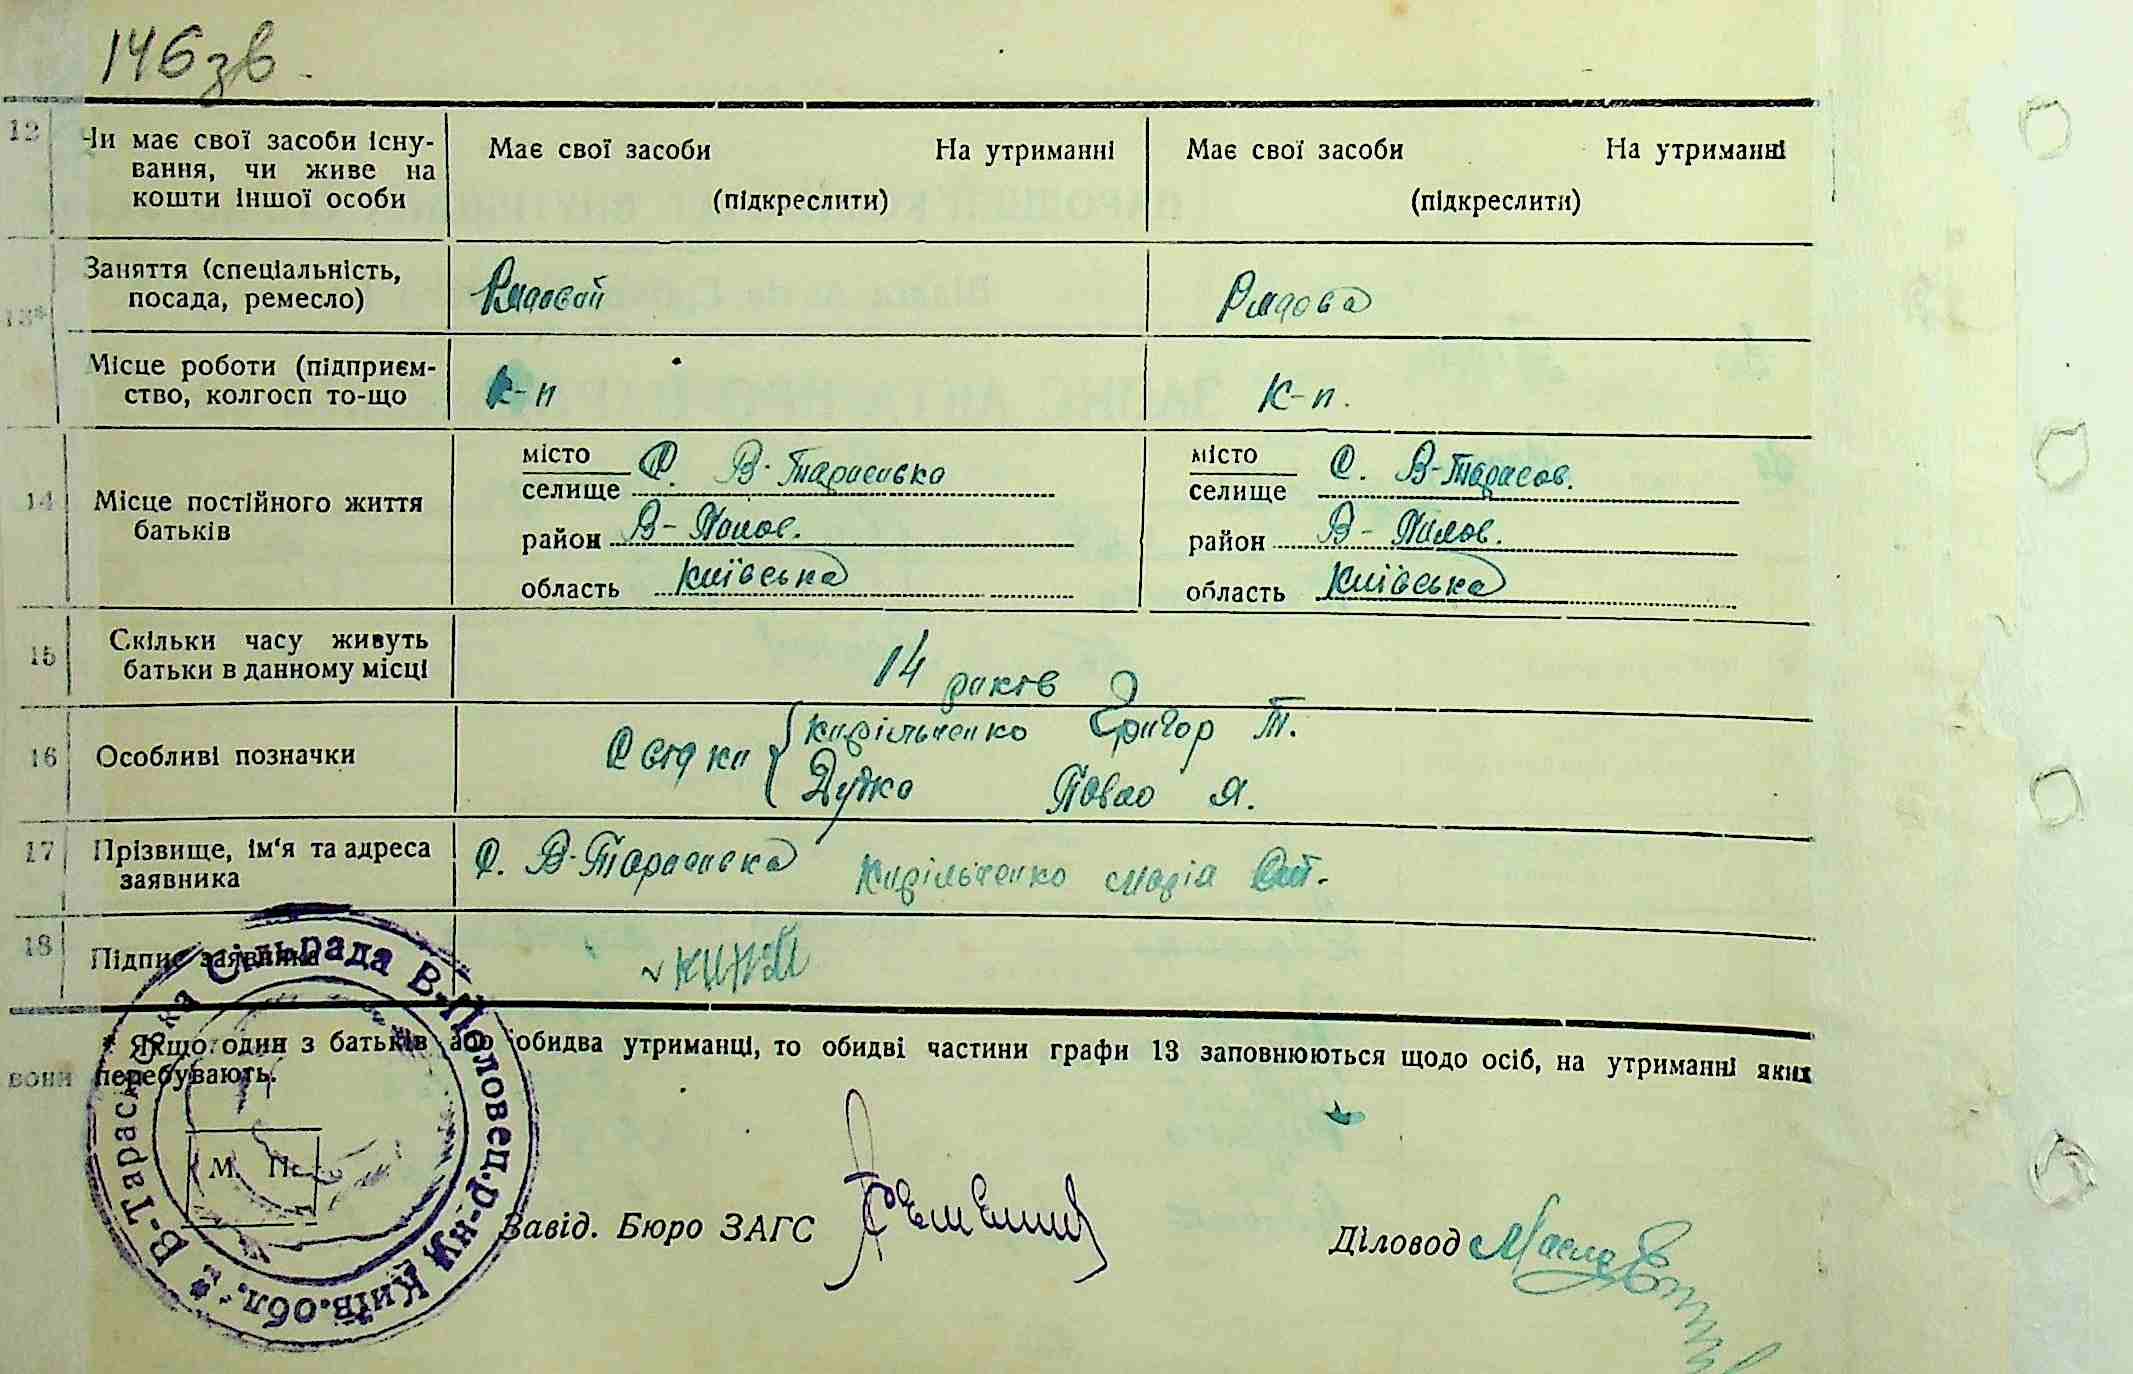 146 зв.
12 Чи має свої засоби існу- Має свої засоби На утриманні Має свої засоби На утриманні
вання, чи живе на
кошти іншої особи (підкреслити) (підкреслити)
Заняття (спеціальність, Рядовий Рядова
посада, ремесло)
13*
Місце роботи (підприєм- к-п К-п.
ство, колгосп то-що
14 Місце постійного життя батьків
місто С. В-Тарасівка місто С. В-Тарасов.
селище селище
район В-Полов. район В-Полов.
область Київська область Київська
15 Скільки часу живуть 14 раків
батьки в данному місці
16 Особливі позначки Свідки Кирільченко Григор Т.
Дудко Павло Я.
17 Прізвище, ім'я та адреса С. В-Тарасівка Кирільченко Марія
заявника
18 Підпис заявника
* Якщо один з батьків або обидва утриманці, то обидві частини графи 13 заповнюються щодо осіб, на утриманні яких
вони перебувають.
В-Тарасівська Сільрада В-Половец.р-ну Київ.обл.
М. П.
Завід. Бюро ЗАГС
Діловод